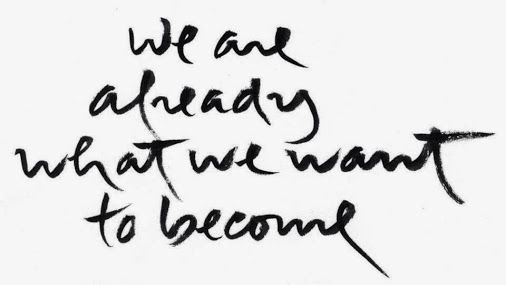 we are
already
what we want
to become